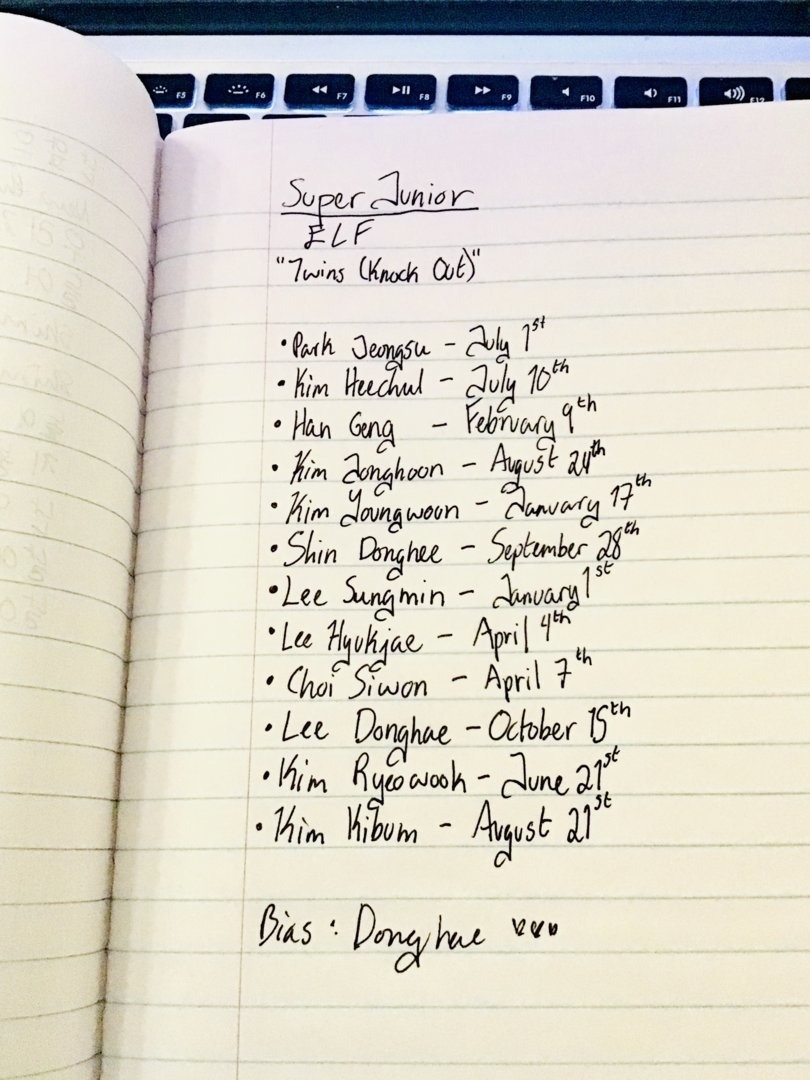 F5 F6 F7 F8 F9 F10 F11 F12
Super Junior
ELF
"Twins (Knock Out)"
•Park Jeongsu - July 1st
•Kim Heechul - July 10th
•Han Geng - February 9th
•Kim Jonghoon - August 24th
•Kim Youngwoon - January 17th
•Shin Donghee - September 28th
•Lee Sungmin - January 1st
•Lee Hyukjae - April 4th
•Choi Siwon - April 7th
•Lee Donghae - October 15th
•Kim Ryeowook - June 21st
•Kim Kibum - August 21st
Bias : Donghae ♥♥♥